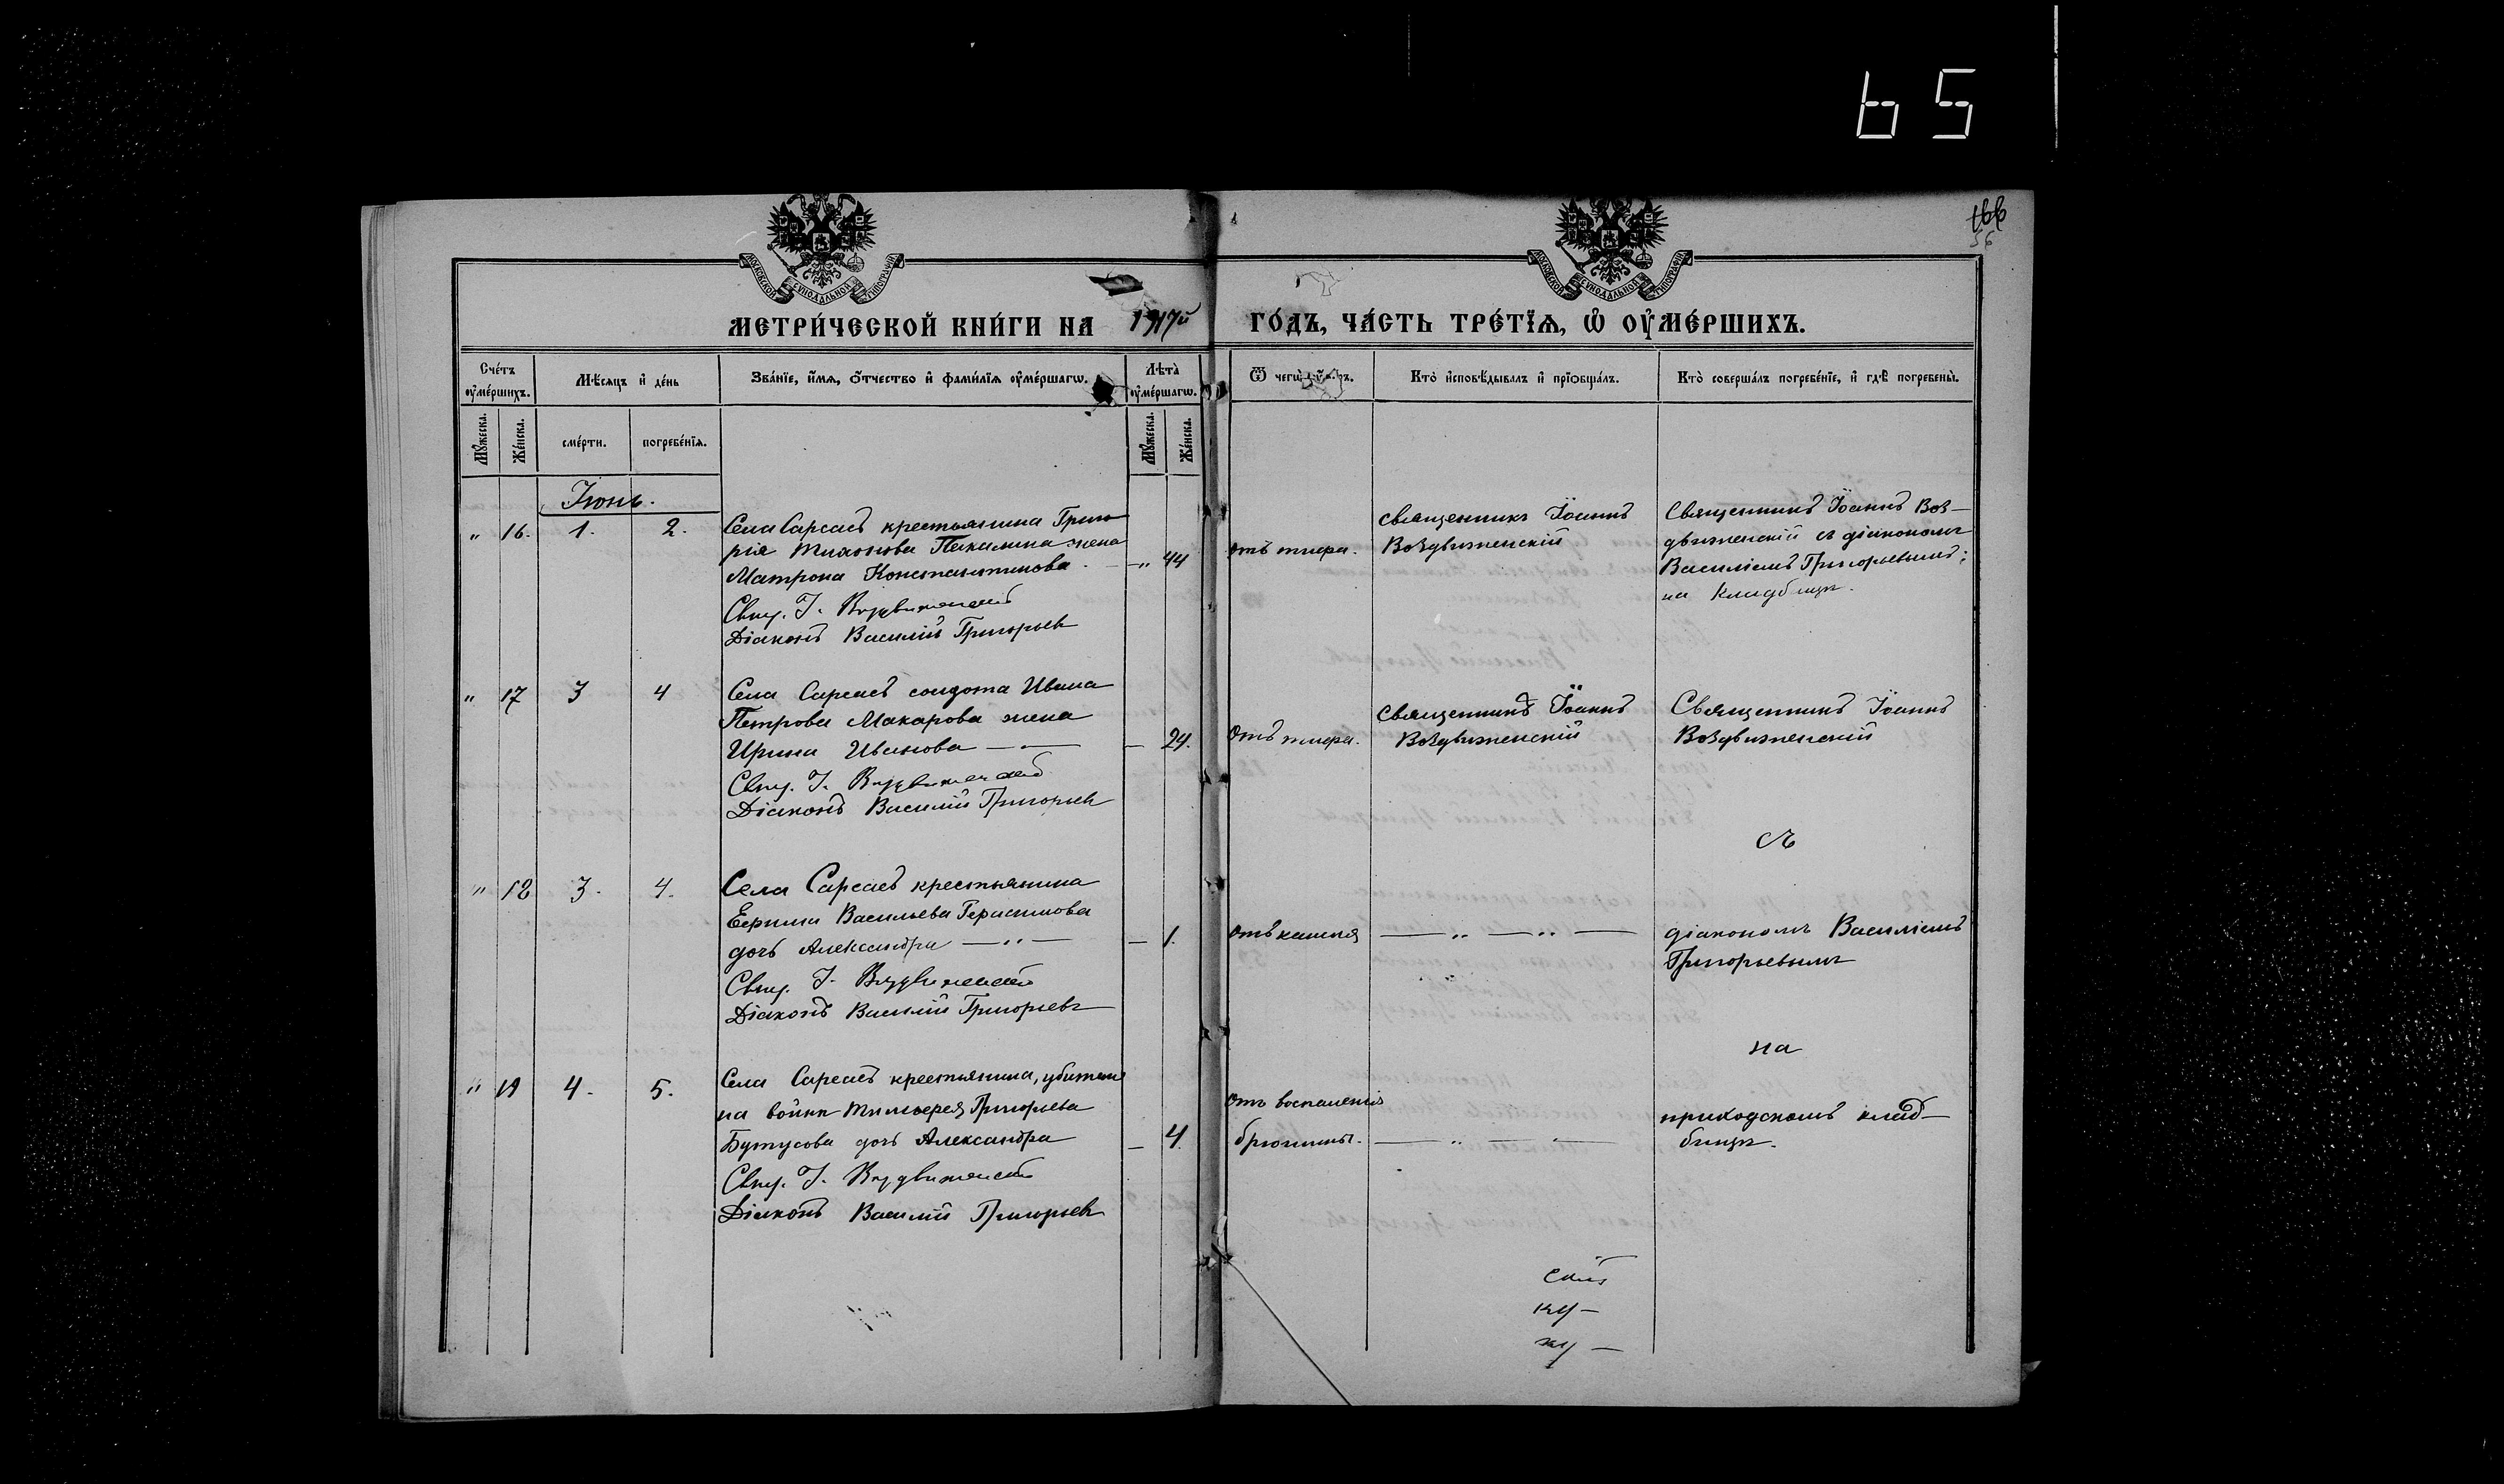 65
166
56
МОСКОВСКОЙ СУНОДАЛЬНОЙ ТИПОГРАФІИ
МОСКОВСКОЙ СУНОДАЛЬНОЙ ТИПОГРАФІИ
МЕТРИ́ЧЕСКОЙ КНИ́ГИ НА 1917й ГО́ДЪ, ЧА́СТЬ ТРЕ́ТІѦ, Ѡ ОУМЕ́РШИХЪ.
Счетъ оумершихъ.
Мѣсяцъ и день
Званіе, имя, отчество и фамилія оумершагѡ.
Лѣта оумершагѡ.
Ѿ чегѡ
Кто исповѣдывалъ и пріобщалъ.
Кто совершалъ погребеніе, и гдѣ погребены.
Мужеска.
Женска.
смерти.
погребенія.
Мужеска.
Женска.
Іюнь.
" 16. 1. 2.
Села Сарсасъ крестьянина Григо-
рія Тихонова Пекалина жена
Матрона Константинова
—" 44
Свящ. І. Воздвиженскій
Діаконъ Василій Григорьев
отъ тифа.
Священникъ Іоаннъ
Воздвиженскій
Священникъ Іоаннъ Воз-
движенскій съ діакономъ
Василіемъ Григорьевымъ;
на кладбищѣ.
" 17 3 4
Села Сарсасъ солдата Ивана
Петрова Макарова жена
Ирина Иванова —
— 24.
Свящ. І. Воздвиженскій
Діаконъ Василій Григорьев
Отъ тифа.
Священникъ Іоаннъ
Воздвиженскій
Священникъ Іоаннъ
Воздвиженскій
съ
" 18 3. 4.
Села Сарсасъ крестьянина
Ефима Васильева Герасимова
дочь Александра — " —
— 1.
Свящ. І. Воздвиженскій
Діаконъ Василій Григорьевъ
отъ кашля
— " — " —
діакономъ Василіемъ
Григорьевымъ
на
" 19 4. 5.
Села Сарсасъ крестьянина, убитаго
на войнѣ Тимофея Григорьева
Бутусова дочь Александра
— 4.
Свящ. І. Воздвиженскій
Діаконъ Василій Григорьев
Отъ воспаленія
брюшины.
— " — " —
приходскомъ клад-
бищѣ.